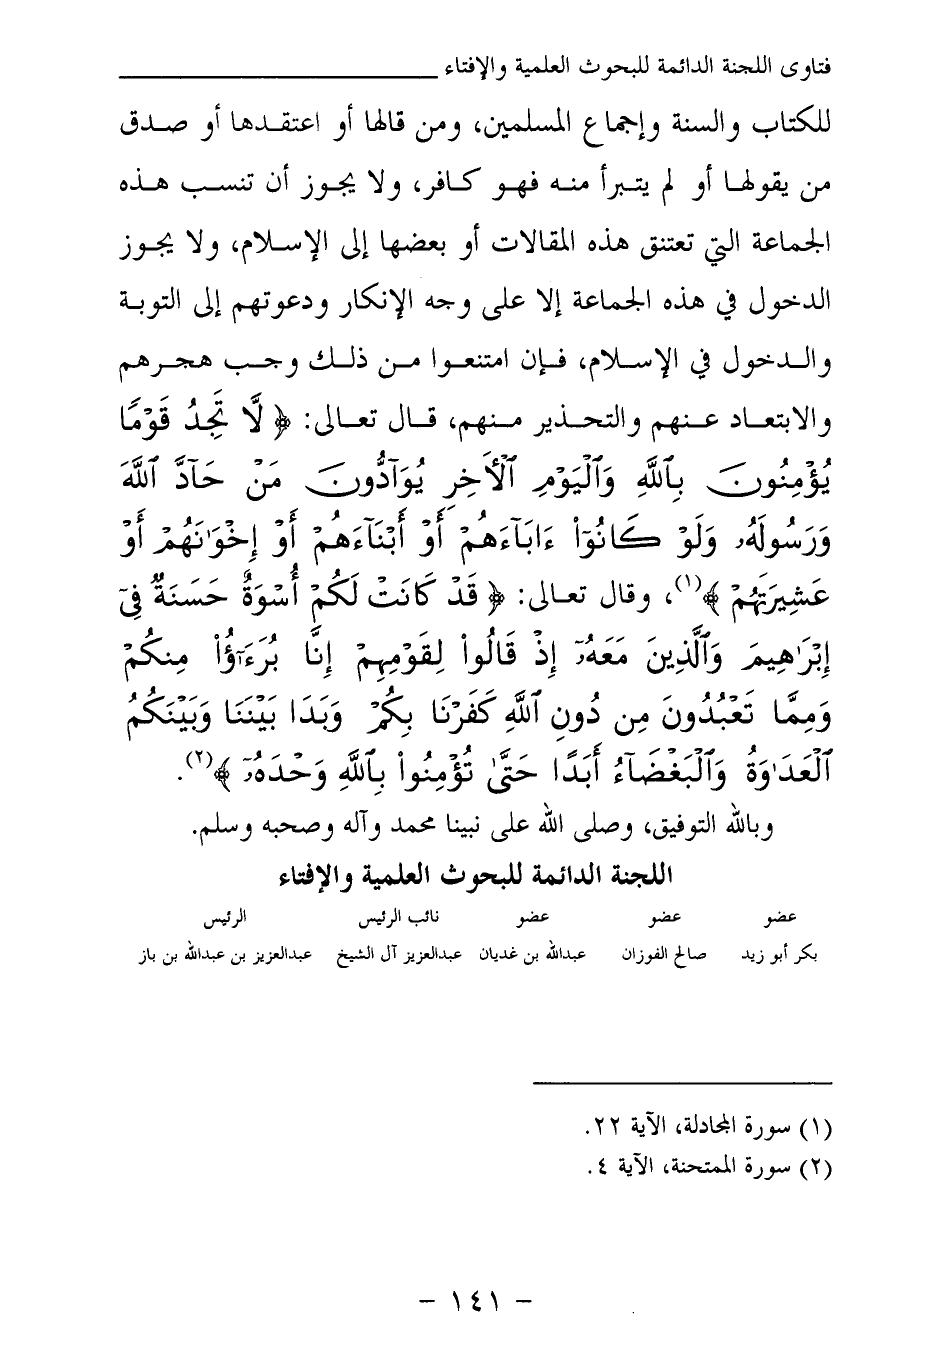 فتاوى اللجنة الدائمة للبحوث العلمية والإفتاء
للكتاب والسنة وإجماع المسلمين، ومن قالها أو اعتقدها أو صدق
من يقولها أو لم يتبرأ منه فهو كافر، ولا يجوز أن تنسب هذه
الجماعة التي تعتنق هذه المقالات أو بعضها إلى الإسلام، ولا يجوز
الدخول في هذه الجماعة إلا على وجه الإنكار ودعوتهم إلى التوبة
والدخول في الإسلام، فإن امتنعوا من ذلك وجب هجرهم
والابتعاد عنهم والتحذير منهم، قال تعالى: ﴿ لَّا تَجِدُ قَوْمًا
يُؤْمِنُونَ بِٱللَّهِ وَٱلْيَوْمِ ٱلْأَخِرِ يُوَآدُّونَ مَنْ حَآدَّ ٱللَّهَ
وَرَسُولَهُۥ وَلَوْ كَانُوٓا۟ ءَابَآءَهُمْ أَوْ أَبْنَآءَهُمْ أَوْ إِخْوَٰنَهُمْ أَوْ
عَشِيرَتَهُمْ ﴾(١)، وقال تعالى: ﴿ قَدْ كَانَتْ لَكُمْ أُسْوَةٌ حَسَنَةٌ فِىٓ
إِبْرَٰهِيمَ وَٱلَّذِينَ مَعَهُۥٓ إِذْ قَالُوا۟ لِقَوْمِهِمْ إِنَّا بُرَءَٰٓؤُا۟ مِنكُمْ
وَمِمَّا تَعْبُدُونَ مِن دُونِ ٱللَّهِ كَفَرْنَا بِكُمْ وَبَدَا بَيْنَنَا وَبَيْنَكُمُ
ٱلْعَدَٰوَةُ وَٱلْبَغْضَآءُ أَبَدًا حَتَّىٰ تُؤْمِنُوا۟ بِٱللَّهِ وَحْدَهُۥٓ ﴾(٢).
وبالله التوفيق، وصلى الله على نبينا محمد وآله وصحبه وسلم.
اللجنة الدائمة للبحوث العلمية والإفتاء
عضو عضو عضو نائب الرئيس الرئيس
بكر أبو زيد صالح الفوزان عبدالله بن غديان عبدالعزيز آل الشيخ عبدالعزيز بن عبدالله بن باز
(١) سورة المجادلة، الآية ٢٢.
(٢) سورة الممتحنة، الآية ٤.
- ١٤١ -